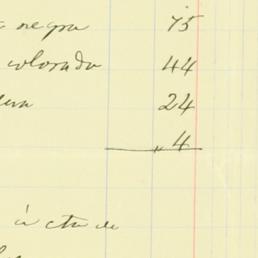 negra 75
colorado 44
24
" 4
à cta de